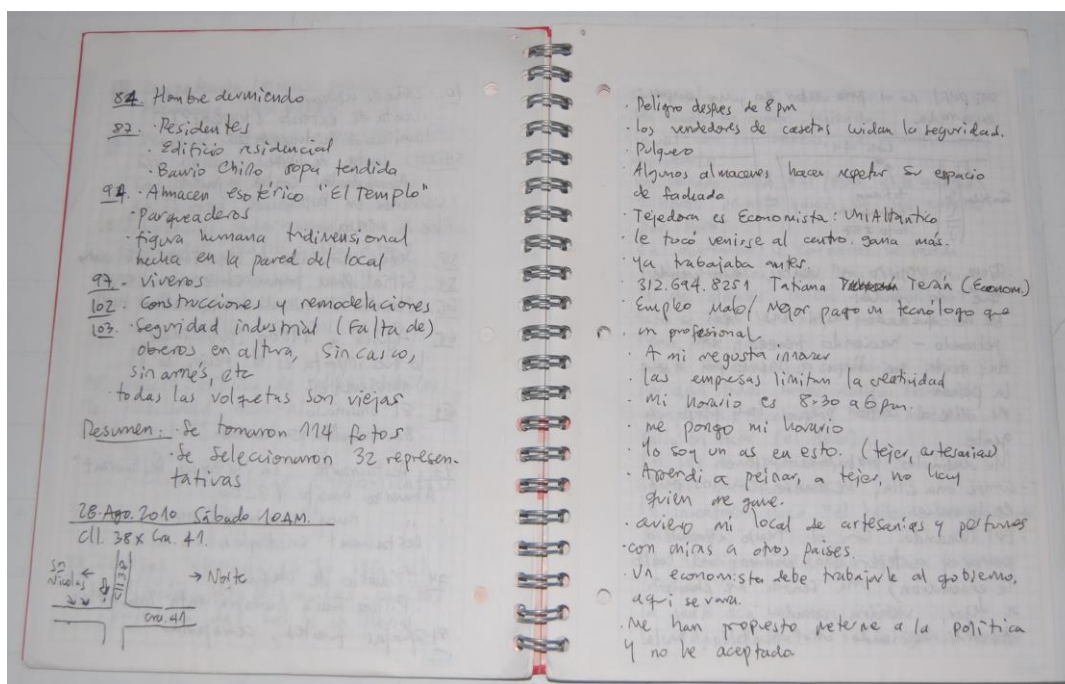 84. Hombre durmiendo
87. · Residentes
· Edificio residencial
· Barrio Chillo ropa tendida
94. · Almacen esotérico "El Templo"
· Parqueaderos
· figura humana tridimensional
hecha en la pared del local
97. - viveros
102. Construcciones y remodelaciones
103. · Seguridad industrial (Falta de)
obreros en altura, Sin casco,
sin arnés, etc
· todas las volquetas son viejas
Resumen: · Se tomaron 114 fotos
· Se Seleccionaron 32 represen-
tativas
28. Ago. 2010 Sábado 10 AM.
Cll. 38 x Cra. 41.
Sn
Nicolas ←
Cll 38
→ Norte
Cra. 41
· Peligro despues de 8 pm
· los vendedores de casetas cuidan la seguridad.
· Pulguero
· Algunos almacenes hacen respetar su espacio
de fachada
· Tejedora es Economista: UniAtlántico
· le tocó venirse al centro. gana más.
· ya trabajaba antes.
312.694.8251 Tatiana Terán (Econom.)
· Empleo Malo / Mejor pago un tecnólogo que
un profesional.
· A mi me gusta innovar
· las empresas limitan la creatividad
· mi horario es 8:30 a 6 pm.
· me pongo mi horario
· Yo soy un as en esto. (tejer, artesanias)
· Aprendi a peinar, a tejer, no hay
quien me gane.
· quiero mi local de artesanias y perfumes
· con miras a otros paises.
· Un economista debe trabajarle al gobierno,
aqui se vara.
· Me han propuesto meterme a la politica
y no he aceptado